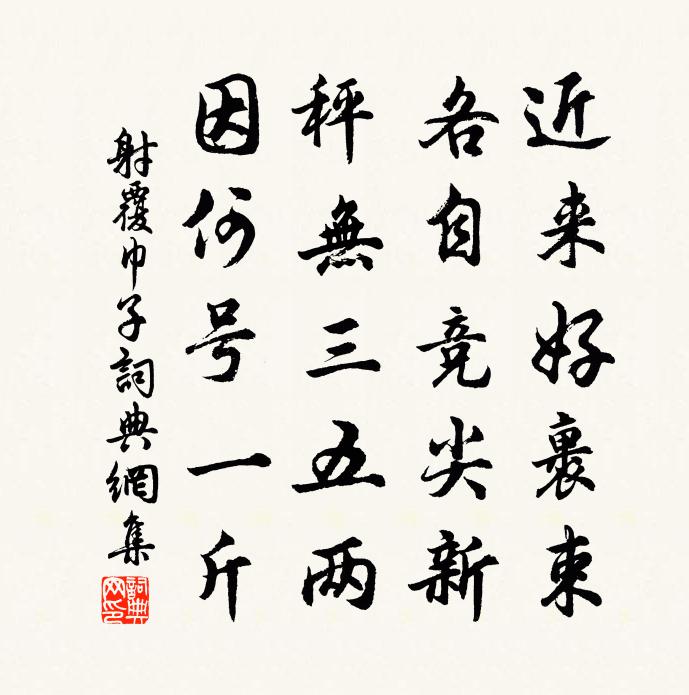 近来好裹束
各自竞尖新
秤無三五两
因何号一斤
射覆巾子詞典網集
詞典网印